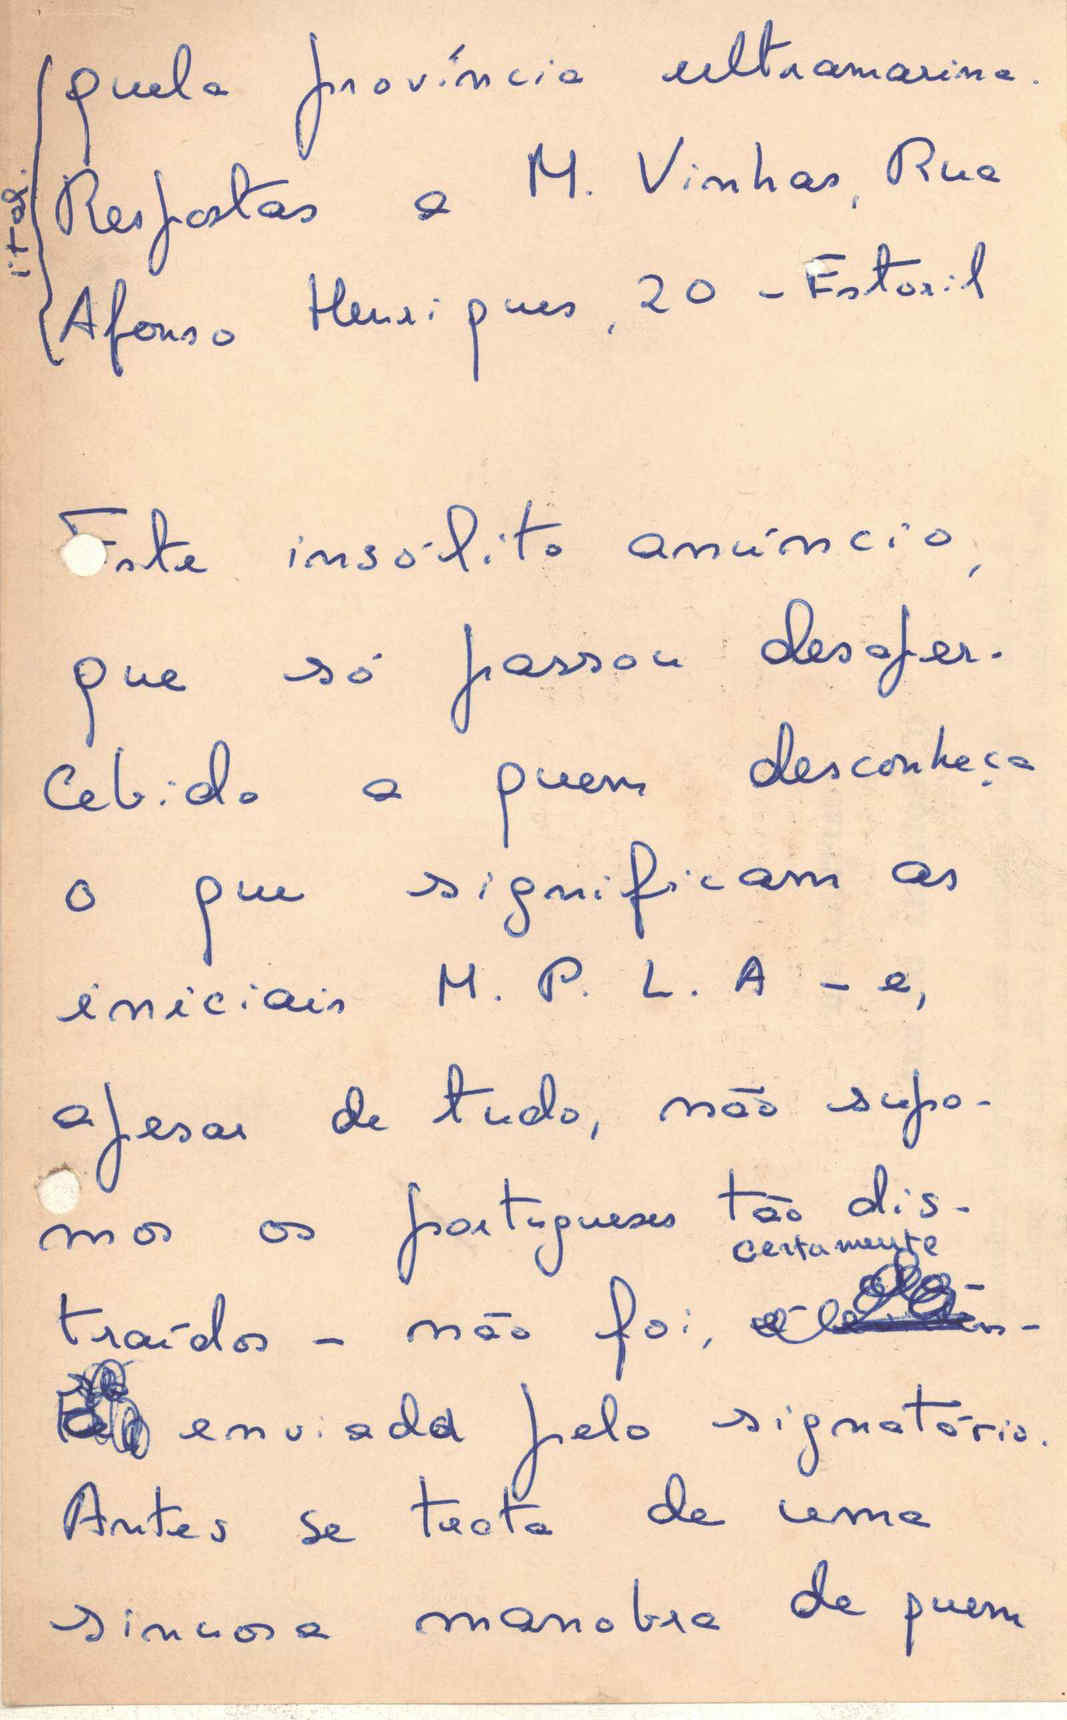 ital.
quela província ultramarina.
Respostas a M. Vinhas, Rua
Afonso Henriques, 20 - Estoril
Este insólito anúncio,
que só passou desaper-
cebido a quem desconheça
o que significam as
iniciais M. P. L. A - e,
apesar de tudo, não supo-
mos os portugueses tão dis-
certamente
traídos - não foi,
enviada pelo signatório.
Antes se trata de uma
sinuosa manobra de quem